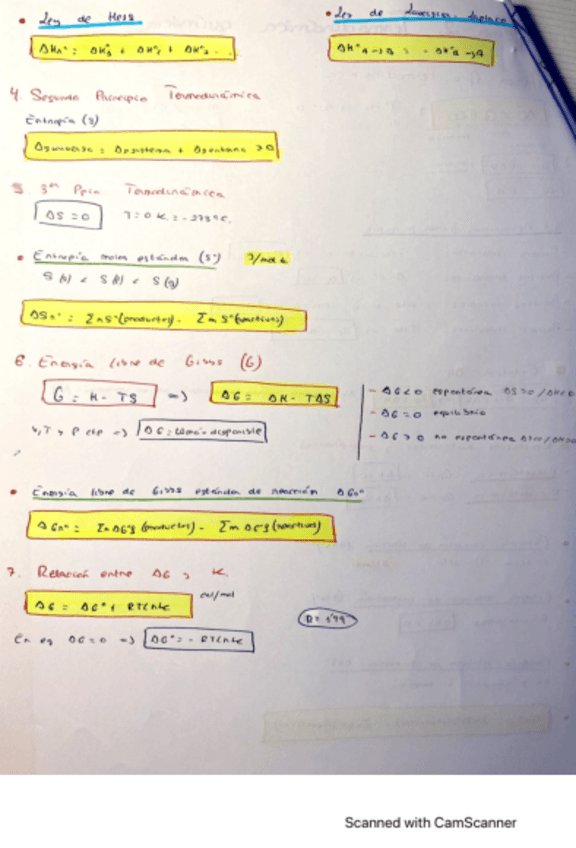 • Ley de Hess
ΔHr° = ΔH°1 + ΔH°2 + ΔH°3...
• Ley de Lavoisier-Laplace
ΔH°A→B = - ΔH°B→A
4. Segundo Principio Termodinámica
Entropía (S)
ΔSuniverso = ΔSsistema + ΔSentorno > 0
5. 3er Ppio Termodinámica
ΔS = 0 T = 0 K = -273°C.
• Entropía molar estándar (S°) J/mol K
S (s) < S (l) < S (g)
ΔSr° = Σn S°(productos) - Σm S°(reactivos)
6. Energía libre de Gibbs (G)
G = H - TS => ΔG = ΔH - TΔS
- ΔG<0 espontánea ΔS>0/ΔH<0
- ΔG=0 equilibrio
- ΔG>0 no espontánea
T y P cte => ΔG =
• Energía libre de Gibbs estándar de reacción ΔGr°
ΔGr° = Σn ΔG°f (productos) - Σm ΔG°f (reactivos)
7. Relación entre ΔG y K
ΔG = ΔG° + RTLnKc cal/mol
R = 1'99
En eq ΔG = 0 => ΔG° = - RTLnKc
Scanned with CamScanner